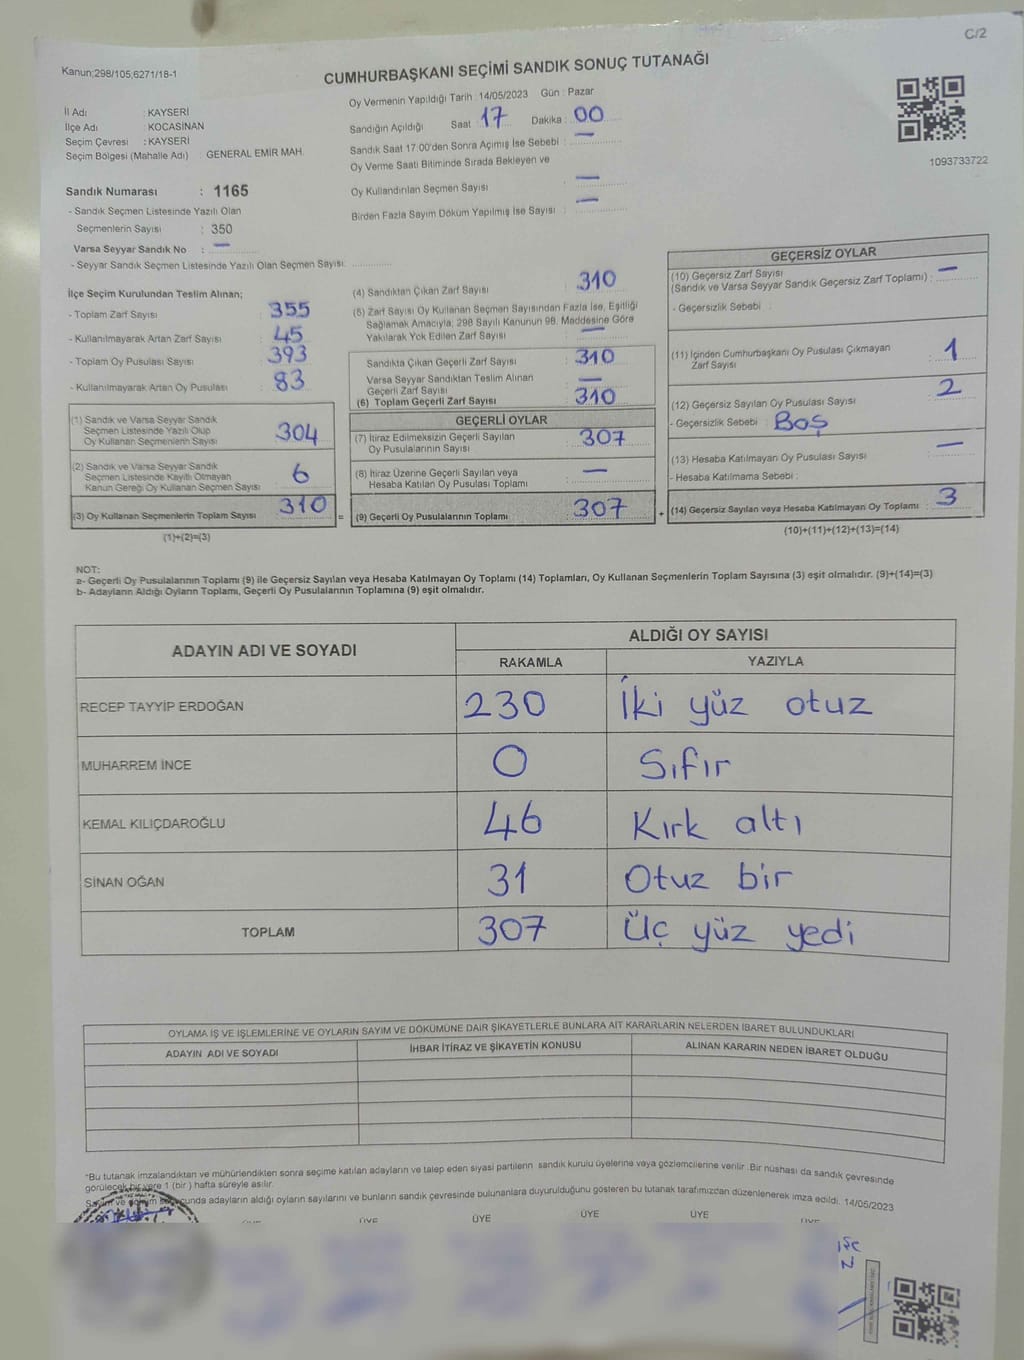 C/2
Kanun;298/105,6271/18-1
CUMHURBAŞKANI SEÇİMİ SANDIK SONUÇ TUTANAĞI
İl Adı : KAYSERİ
İlçe Adı : KOCASİNAN
Seçim Çevresi : KAYSERİ
Seçim Bölgesi (Mahalle Adı) : GENERAL EMİR MAH.
Sandık Numarası : 1165
- Sandık Seçmen Listesinde Yazılı Olan
Seçmenlerin Sayısı : 350
Varsa Seyyar Sandık No : —
- Seyyar Sandık Seçmen Listesinde Yazılı Olan Seçmen Sayısı: ..............
Oy Vermenin Yapıldığı Tarih : 14/05/2023 Gün : Pazar
Sandığın Açıldığı Saat : 17 Dakika : 00
Sandık Saat 17:00'den Sonra Açılmış İse Sebebi : —
Oy Verme Saati Bitiminde Sırada Bekleyen ve
Oy Kullandırılan Seçmen Sayısı : —
Birden Fazla Sayım Döküm Yapılmış İse Sayısı : —
1093733722
İlçe Seçim Kurulundan Teslim Alınan;
- Toplam Zarf Sayısı : 355
- Kullanılmayarak Artan Zarf Sayısı : 45
- Toplam Oy Pusulası Sayısı : 393
- Kullanılmayarak Artan Oy Pusulası : 83
(1) Sandık ve Varsa Seyyar Sandık
Seçmen Listesinde Yazılı Olup
Oy Kullanan Seçmenlerin Sayısı : 304
(2) Sandık ve Varsa Seyyar Sandık
Seçmen Listesinde Kayıtlı Olmayan
Kanun Gereği Oy Kullanan Seçmen Sayısı : 6
(3) Oy Kullanan Seçmenlerin Toplam Sayısı : 310
(1)+(2)=(3)
(4) Sandıktan Çıkan Zarf Sayısı : 310
(5) Zarf Sayısı Oy Kullanan Seçmen Sayısından Fazla İse, Eşitliği
Sağlamak Amacıyla; 298 Sayılı Kanunun 98. Maddesine Göre
Yakılarak Yok Edilen Zarf Sayısı : —
Sandıkta Çıkan Geçerli Zarf Sayısı : 310
Varsa Seyyar Sandıktan Teslim Alınan
Geçerli Zarf Sayısı : —
(6) Toplam Geçerli Zarf Sayısı : 310
GEÇERLİ OYLAR
(7) İtiraz Edilmeksizin Geçerli Sayılan
Oy Pusulalarının Sayısı : 307
(8) İtiraz Üzerine Geçerli Sayılan veya
Hesaba Katılan Oy Pusulaları Toplamı : —
= (9) Geçerli Oy Pusulalarının Toplamı : 307
GEÇERSİZ OYLAR
(10) Geçersiz Zarf Sayısı
(Sandık ve Varsa Seyyar Sandık Geçersiz Zarf Toplamı) : —
- Geçersizlik Sebebi :
(11) İçinden Cumhurbaşkanı Oy Pusulası Çıkmayan
Zarf Sayısı : 1
(12) Geçersiz Sayılan Oy Pusulası Sayısı : 2
- Geçersizlik Sebebi : Boş
(13) Hesaba Katılmayan Oy Pusulası Sayısı : —
- Hesaba Katılmama Sebebi :
+ (14) Geçersiz Sayılan veya Hesaba Katılmayan Oy Toplamı : 3
(10)+(11)+(12)+(13)=(14)
NOT:
a- Geçerli Oy Pusulalarının Toplamı (9) ile Geçersiz Sayılan veya Hesaba Katılmayan Oy Toplamı (14) Toplamları, Oy Kullanan Seçmenlerin Toplam Sayısına (3) eşit olmalıdır. (9)+(14)=(3)
b- Adayların Aldığı Oyların Toplamı, Geçerli Oy Pusulalarının Toplamına (9) eşit olmalıdır.
ADAYIN ADI VE SOYADI ALDIĞI OY SAYISI
RAKAMLA YAZIYLA
RECEP TAYYİP ERDOĞAN 230 İki yüz otuz
MUHARREM İNCE 0 Sıfır
KEMAL KILIÇDAROĞLU 46 Kırk altı
SİNAN OĞAN 31 Otuz bir
TOPLAM 307 Üç yüz yedi
OYLAMA İŞ VE İŞLEMLERİNE VE OYLARIN SAYIM VE DÖKÜMÜNE DAİR ŞİKAYETLERLE BUNLARA AİT KARARLARIN NELERDEN İBARET BULUNDUKLARI
ADAYIN ADI VE SOYADI İHBAR İTİRAZ VE ŞİKAYETİN KONUSU ALINAN KARARIN NEDEN İBARET OLDUĞU
*Bu tutanak imzalandıktan ve mühürlendikten sonra seçime katılan adayların ve talep eden siyasi partilerin sandık kurulu üyelerine veya gözlemcilerine verilir. Bir nüshası da sandık çevresinde
görülecek bir yere 1 (bir) hafta süreyle asılır.
adayların aldığı oyların sayılarını ve bunların sandık çevresinde bulunanlara duyurulduğunu gösteren bu tutanak tarafımızdan düzenlenerek imza edildi. 14/05/2023
ÜYE ÜYE ÜYE ÜYE ÜYE ÜYE